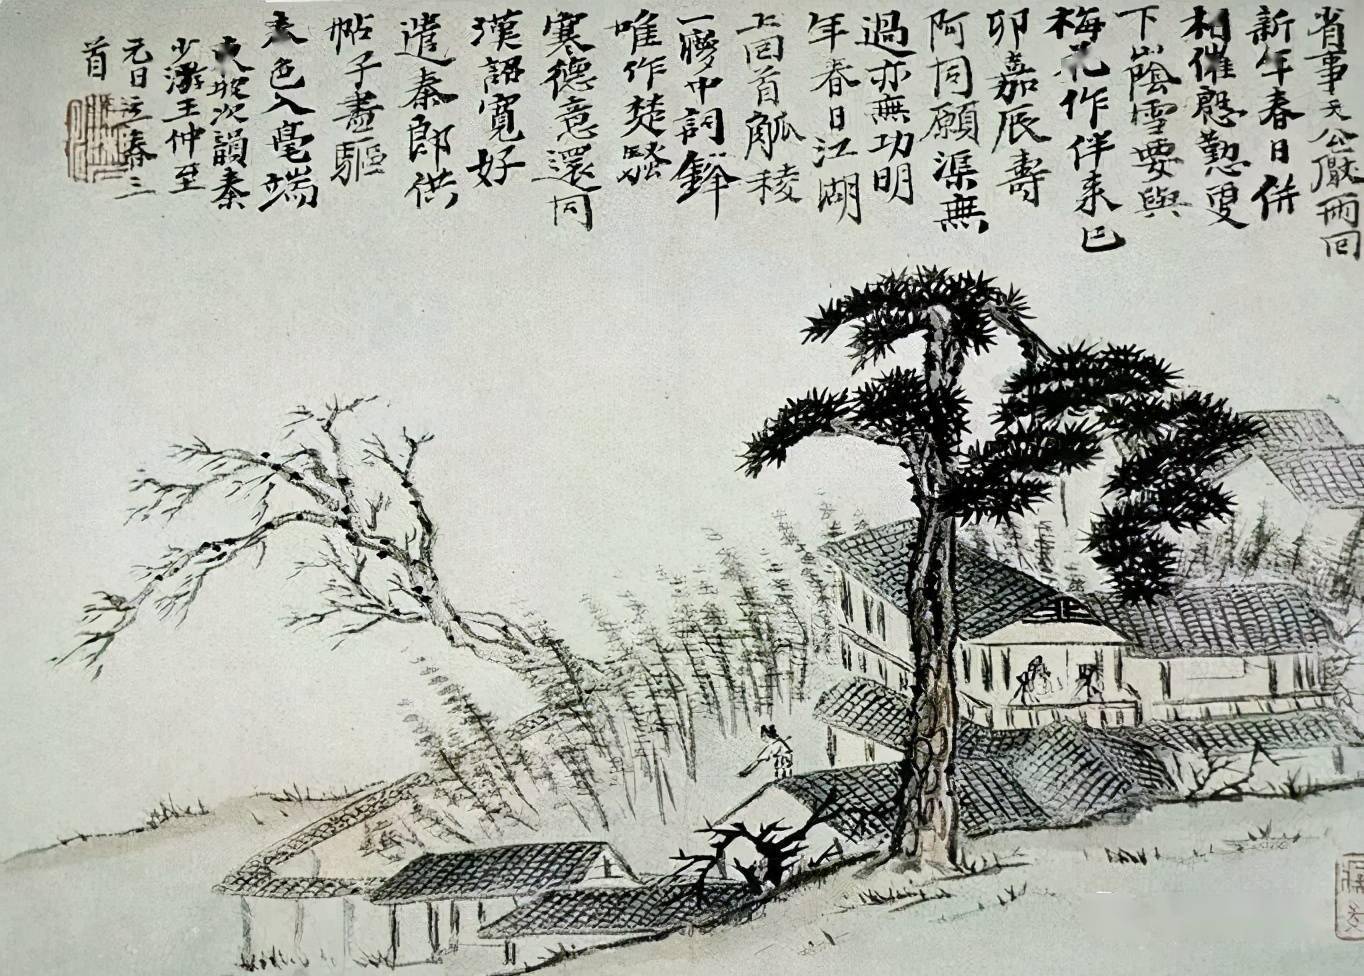 省事天公厭兩回
新年春日併
相催殷勤更
下山陰雪要與
梅花作伴來巳
卯嘉辰壽
阿同願渠無
過亦無功明
年春日江湖
上回首觚稜
一夢中詞鋒
唯作楚騷
寒德意還同
漢詔寬好
遣秦郎供
帖子盡驅
春色入毫端
東坡次韻秦
少游王仲至
元日立春三
首